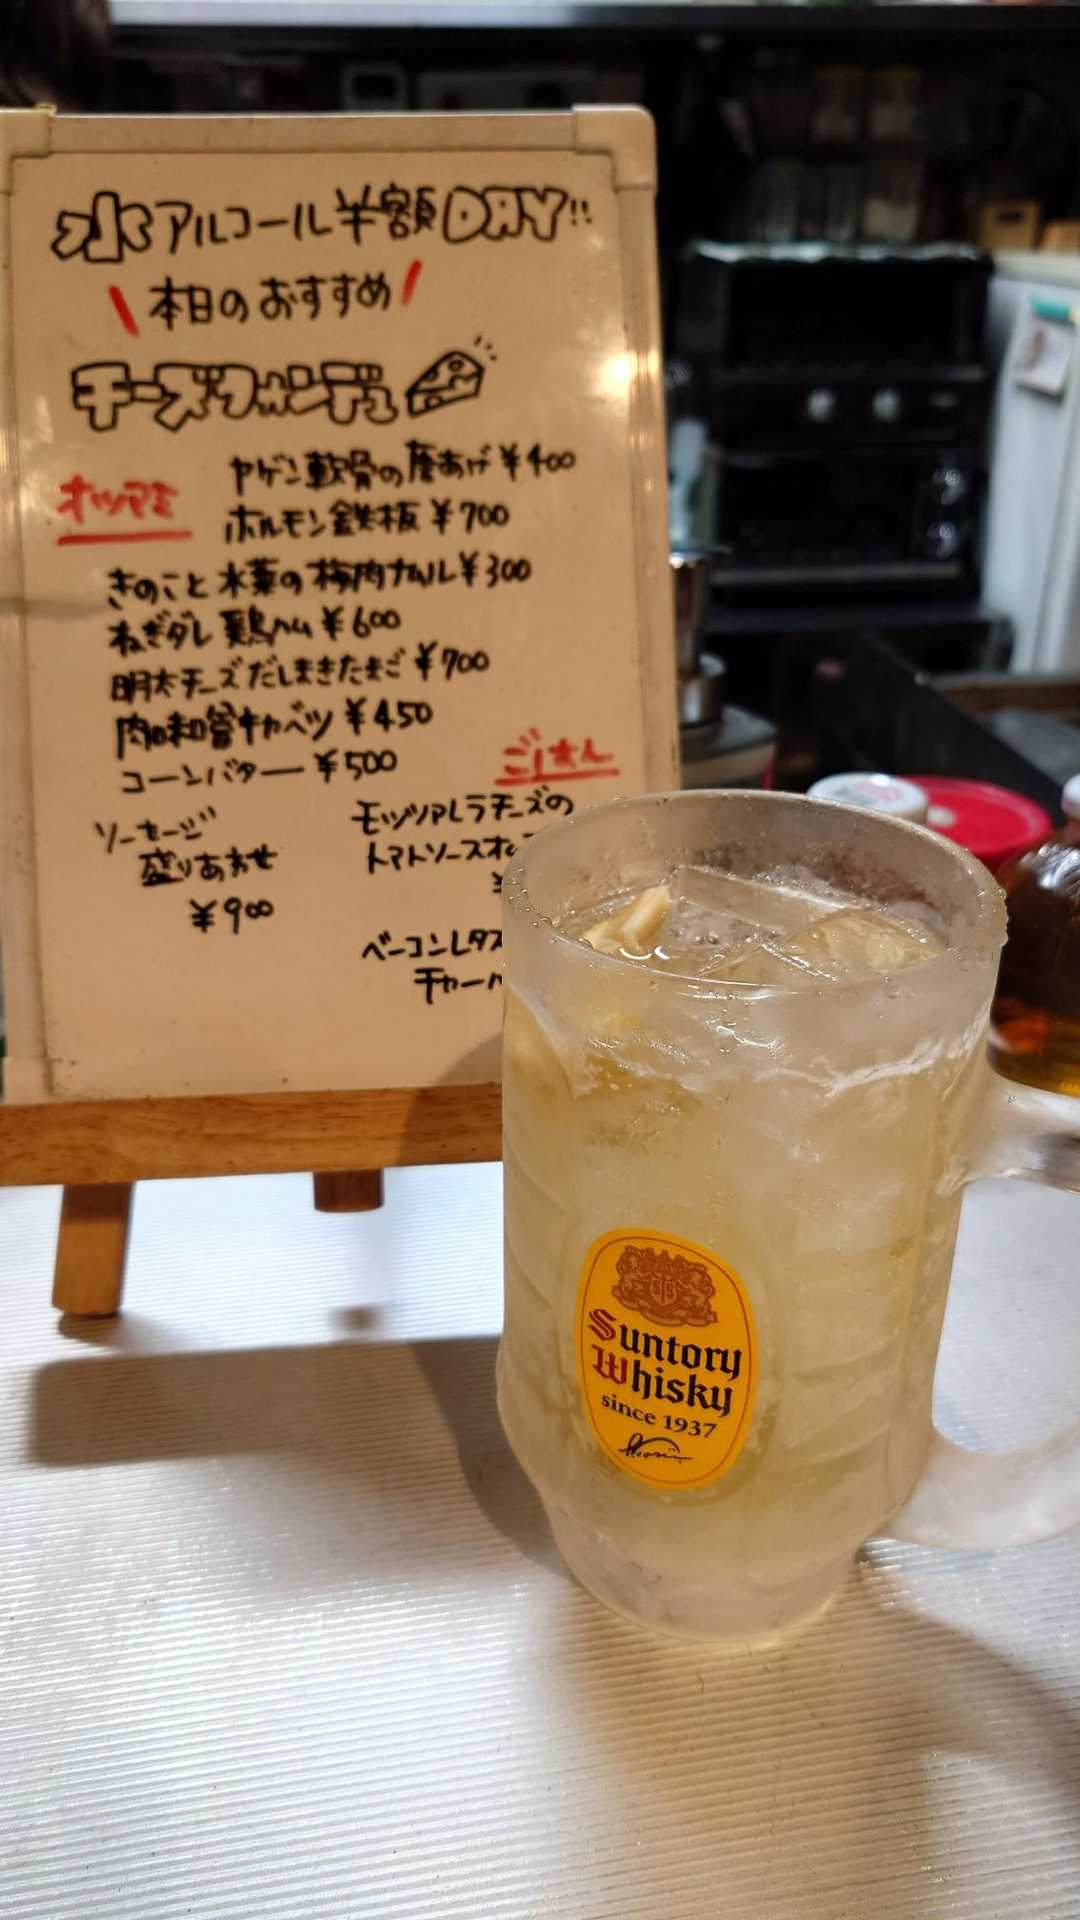 水アルコール半額DAY!!
本日のおすすめ
チーズフォンデュ
オツマミ
ヤゲン軟骨の唐あげ ¥400
ホルモン鉄板 ¥700
きのこと水菜の梅肉ナムル ¥300
ねぎダレ鶏ハム ¥600
明太チーズだしまきたまご ¥700
肉味噌キャベツ ¥450
コーンバター ¥500
ソーセージ
盛りあわせ
¥900
ごはん
モッツァレラチーズの
トマトソースオム
¥
ベーコンレタス
チャー
Suntory
Whisky
since 1937